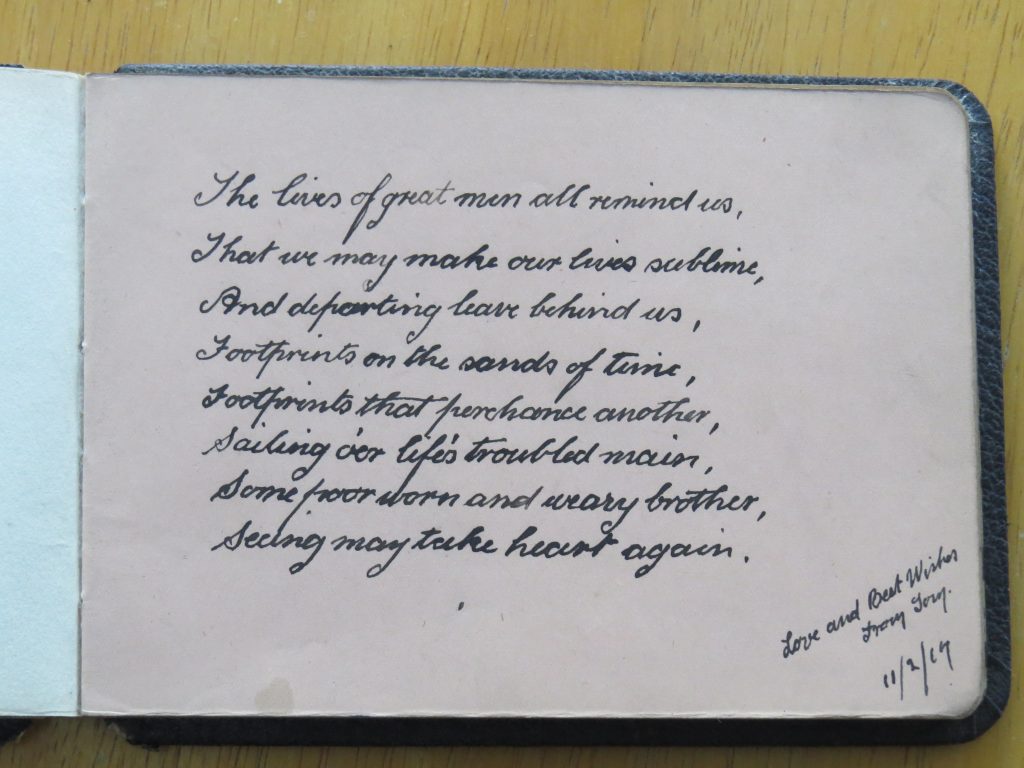 The lives of great men all remind us,
That we may make our lives sublime,
And departing leave behind us,
Footprints on the sands of time,
Footprints that perchance another,
Sailing o'er life's troubled main,
Some poor worn and weary brother,
Seeing may take heart again.
Love and Best Wishes
From
11/2/19